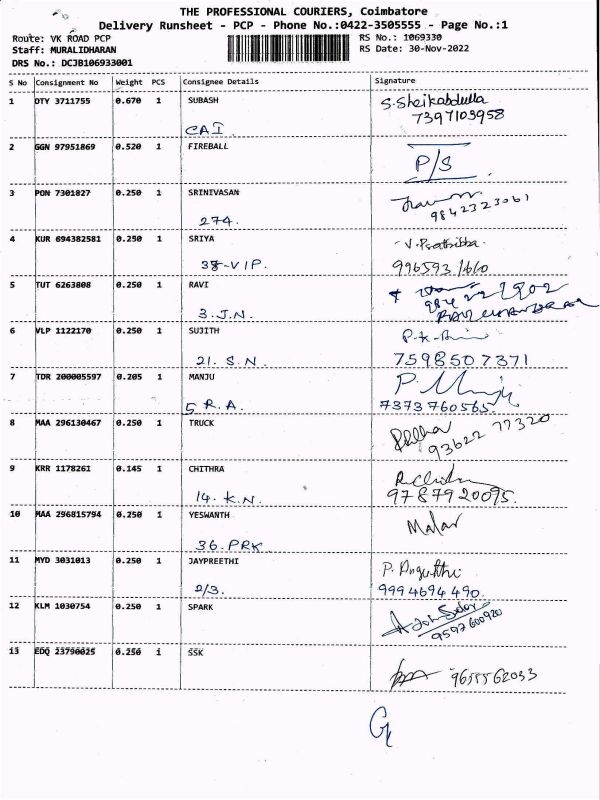 THE PROFESSIONAL COURIERS, Coimbatore
Delivery Runsheet - PCP - Phone No.:0422-3505555 - Page No.:1
Route: VK ROAD PCP
RS No.: 1069330
Staff: MURALIDHARAN
RS Date: 30-Nov-2022
DRS No.: DCJB106933001
S No Consignment No Weight PCS Consignee Details Signature
1 DTY 3711755 0.670 1 SUBASH S.Sheikabdulla
7397103958
CAI
2 GGN 97951869 0.520 1 FIREBALL
P/S
3 PON 7301827 0.250 1 SRINIVASAN
274. 9842323061
4 KUR 694382581 0.250 1 SRIYA V.Prathibha
38-VIP.
5 TUT 6263808 0.250 1 RAVI
3. J.N. RAVICHANDRAN
6 VLP 1122170 0.250 1 SUJITH
21. S.N. 7598507371
7 TDR 200005597 0.205 1 MANJU
5 R.A. 7373760565
8 MAA 296130467 0.250 1 TRUCK
93622 77320
9 KRR 1178261 0.145 1 CHITHRA
14. K.N. 9787920095.
10 MAA 296815794 0.250 1 YESWANTH Malar
36. PRK
11 MYD 3031013 0.250 1 JAYPREETHI
2/3. 9994694490.
12 KLM 1030754 0.250 1 SPARK
9597600920
13 EDQ 23790025 0.250 1 SSK
9655562033